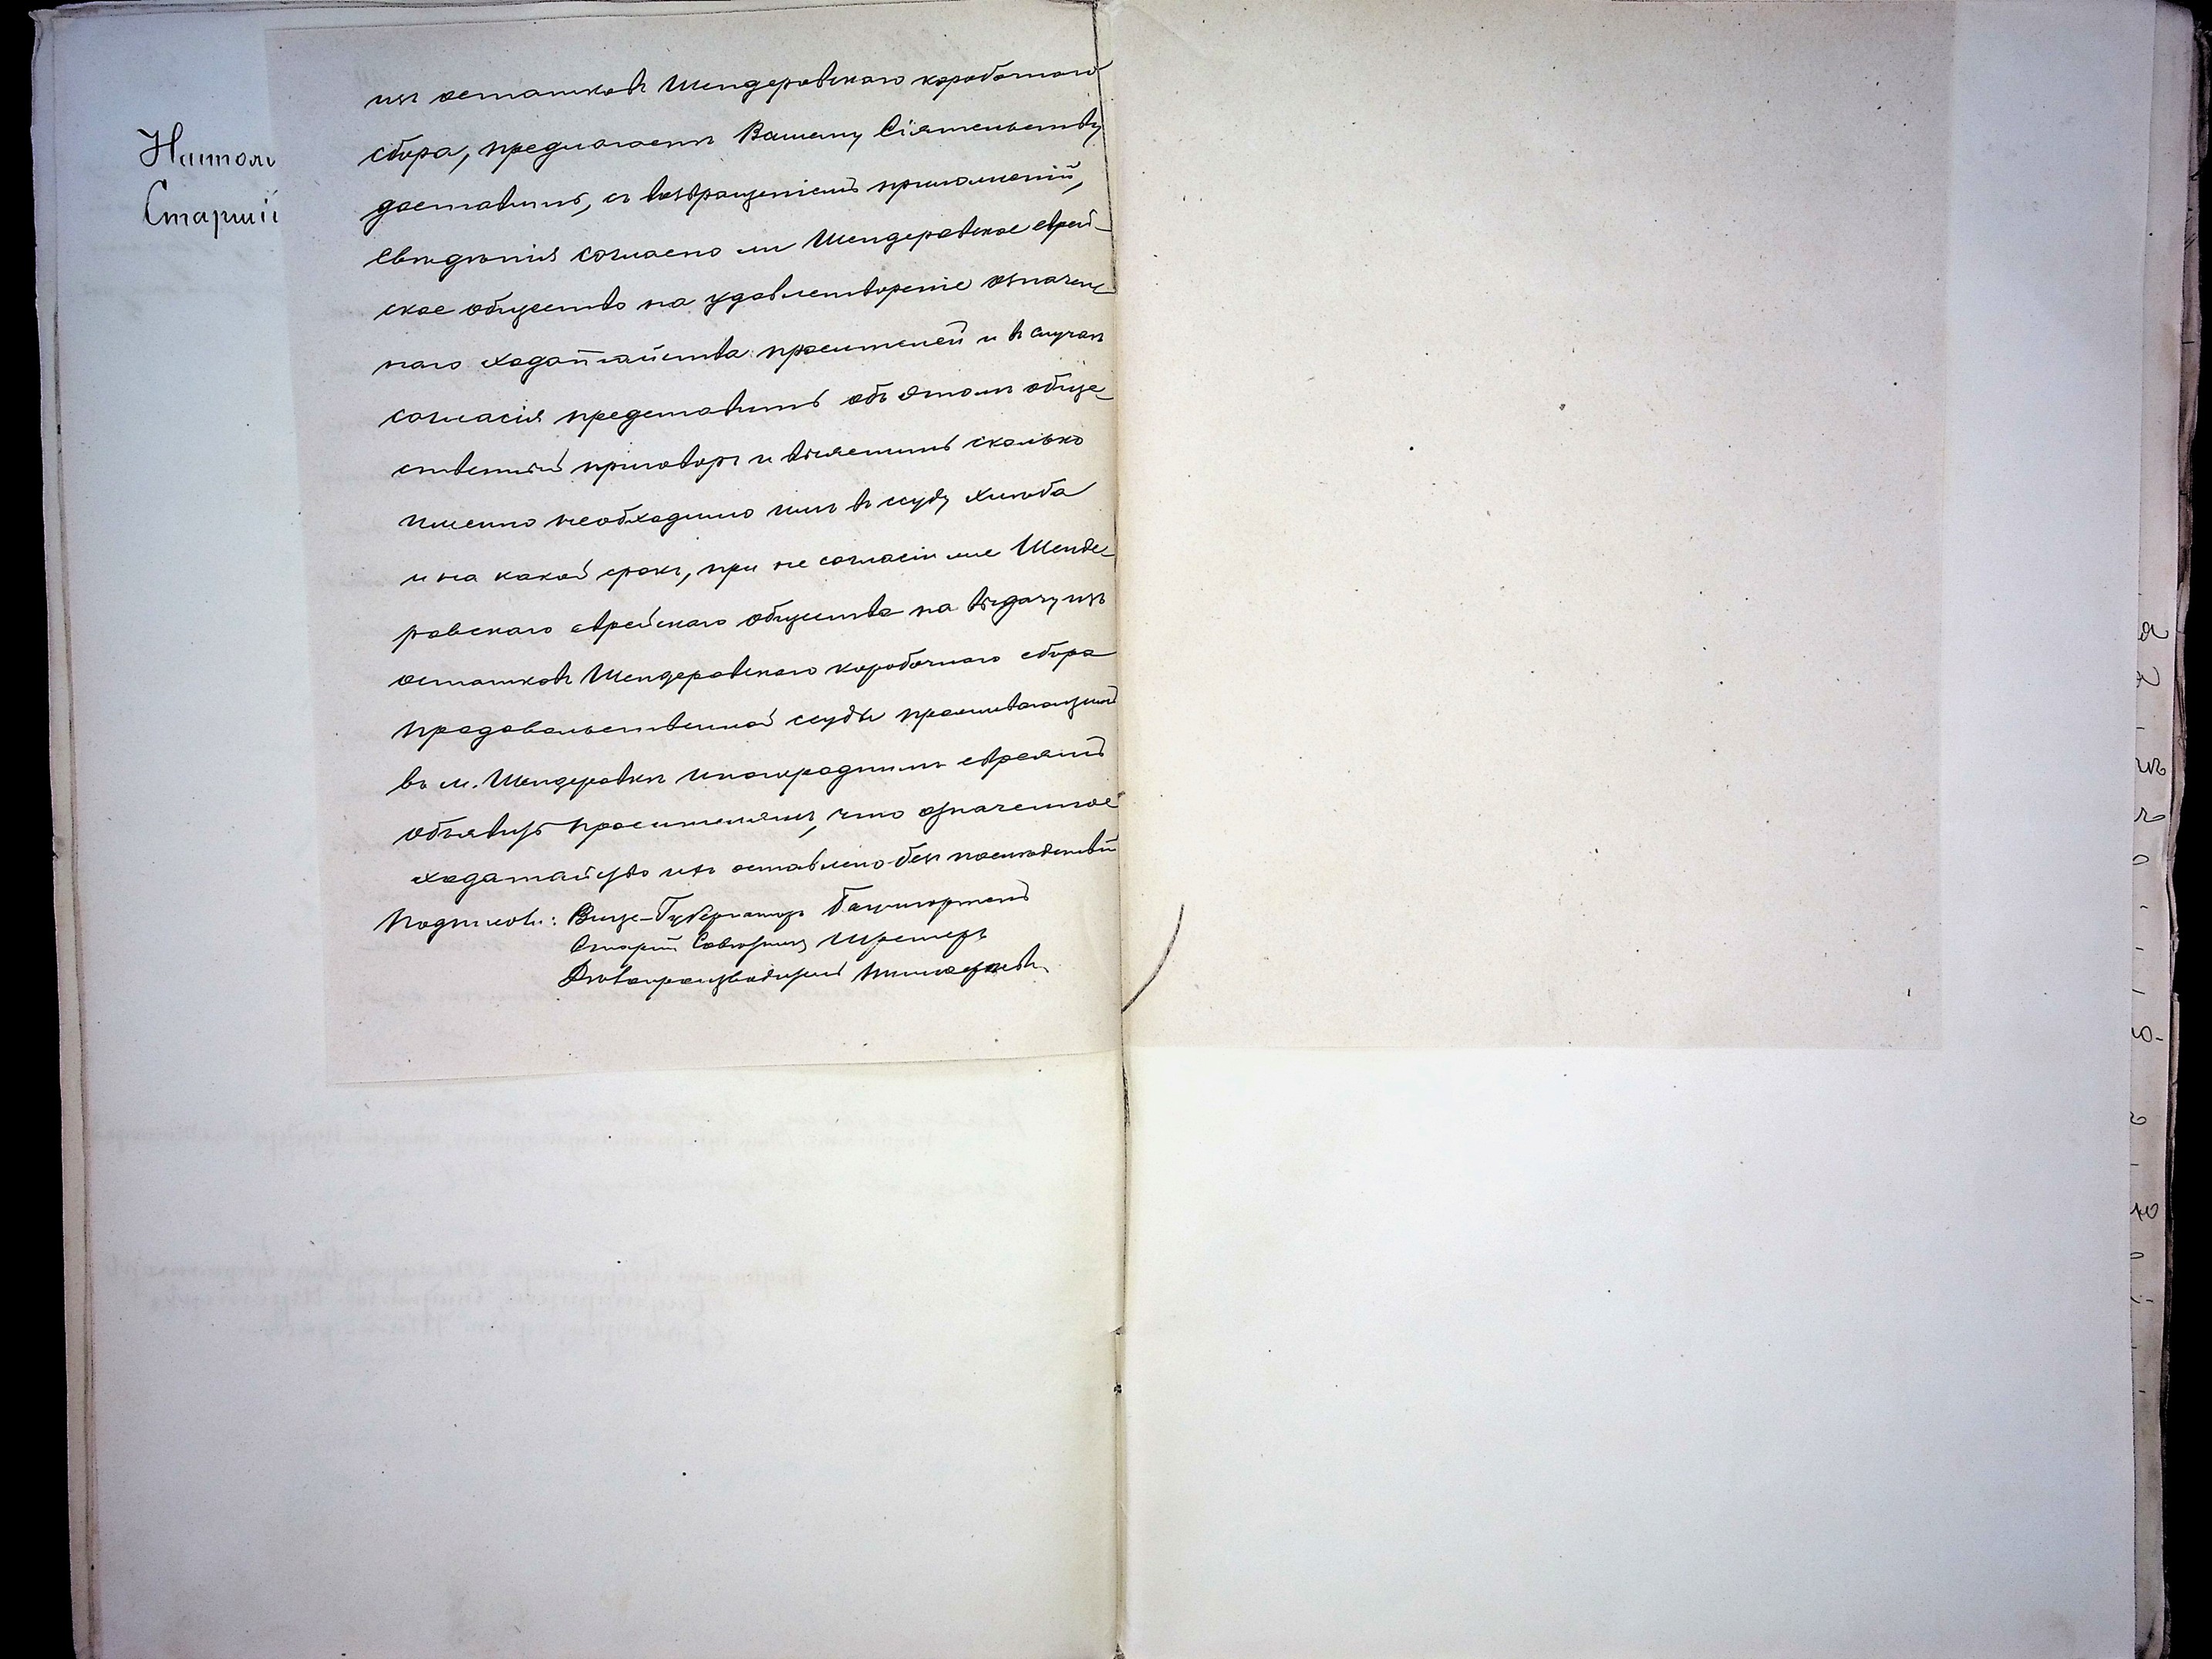 Настоль
Старшій
изъ остатковъ Шендеровскаго коробочнаго
сбора, предлагаетъ Вашему Сіятельству
доставить, съ возвращеніемъ приложеній,
свѣдѣнія согласно ли Шендеровское еврей-
ское общество на удовлетвореніе означен-
наго ходатайства просителей и въ случаѣ
согласія представить объ этомъ обще-
ственный приговоръ и выяснить сколько
именно необходимо имъ въ ссуду хлѣба
и на какой срокъ, при не согласіи же Шенде-
ровскаго еврейскаго общества на выдачу изъ
остатковъ Шендеровскаго коробочнаго сбора
продовольственной ссуды проживающимъ
въ м. Шендеровкѣ иногороднимъ евреямъ
объявить просителямъ, что означенное
ходатайство ихъ оставлено безъ послѣдствій
Подписали: Вице-Губернаторъ
Старшій Совѣтникъ
Дѣлопроизводитель